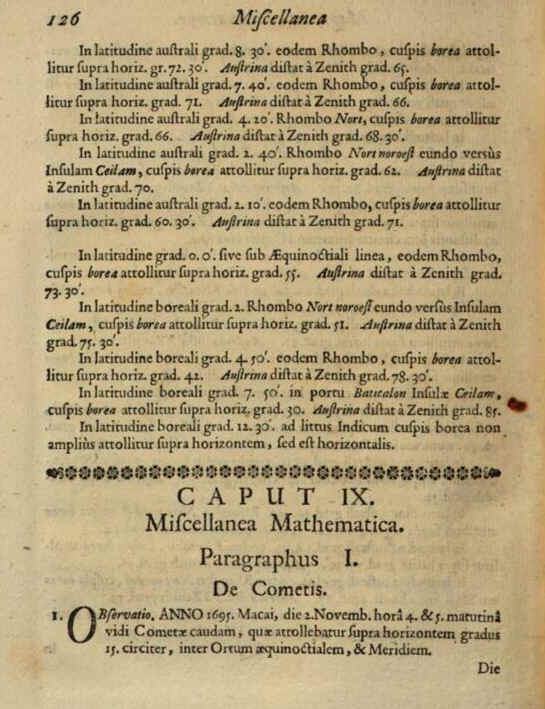 126 Miſcellanea
In latitudine auſtrali grad. 8. 30'. eodem Rhombo, cuſpis borea attol-
litur ſupra horiz. gr. 72. 30'. Auſtrina diſtat à Zenith grad. 65.
In latitudine auſtrali grad. 7. 40'. eodem Rhombo, cuſpis borea attol-
litur ſupra horiz. grad. 71. Auſtrina diſtat à Zenith grad. 66.
In latitudine auſtrali grad. 4. 20'. Rhombo Nort, cuſpis borea attollitur
ſupra horiz. grad. 66. Auſtrina diſtat à Zenith grad. 68. 30'.
In latitudine auſtrali grad. 2. 40'. Rhombo Nort noroeſt eundo versùs
Inſulam Ceilam, cuſpis borea attollitur ſupra horiz. grad. 62. Auſtrina diſtat
à Zenith grad. 70.
In latitudine auſtrali grad. 2. 10'. eodem Rhombo, cuſpis borea attollitur
ſupra horiz. grad. 60. 30'. Auſtrina diſtat à Zenith grad. 71.
In latitudine grad. 0. 0'. ſive ſub Æquinoctiali linea, eodem Rhombo,
cuſpis borea attollitur ſupra horiz. grad. 55. Auſtrina diſtat à Zenith grad.
73. 30'.
In latitudine boreali grad. 2. Rhombo Nort noroeſt eundo verſus Inſulam
Ceilam, cuſpis borea attollitur ſupra horiz. grad. 51. Auſtrina diſtat à Zenith
grad. 75. 30'.
In latitudine boreali grad. 4. 50'. eodem Rhombo, cuſpis borea attol-
litur ſupra horiz. grad. 42. Auſtrina diſtat à Zenith grad. 78. 30'.
In latitudine boreali grad. 7. 50'. in portu Batecalon Inſulæ Ceilam,
cuſpis borea attollitur ſupra horiz. grad. 30. Auſtrina diſtat à Zenith grad. 85.
In latitudine boreali grad. 12. 30'. ad littus Indicum cuſpis borea non
ampliùs attollitur ſupra horizontem, ſed eſt horizontalis.
CAPUT IX.
Miſcellanea Mathematica.
Paragraphus I.
De Cometis.
1. OBſervatio. ANNO 1695. Macai, die 2. Novemb. horâ 4. & 5. matutinâ
vidi Cometæ caudam, quæ attollebatur ſupra horizontem gradus
15. circiter, inter Ortum æquinoctialem, & Meridiem.
Die